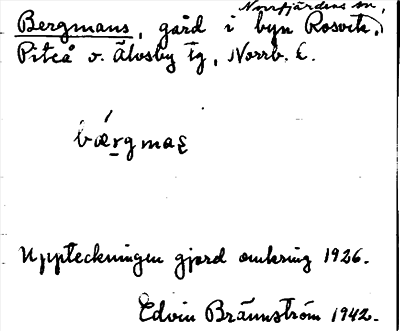 Norrfjärdens sn,
Bergmans, gård i byn Rosvik,
Piteå o. Älvsby tg, Norrb. l.
bærgmas
Uppteckningen gjord omkring 1926.
Edvin Brännström 1942.